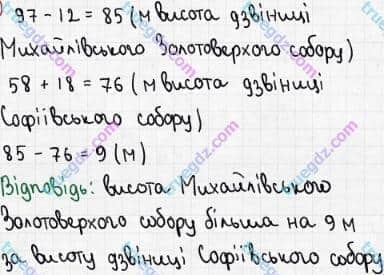 ) 97 - 12 = 85 (м висота дзвіниці
Михайлівського Золотоверхого собору)
58 + 18 = 76 (м висота дзвіниці
Софіївського собору)
85 - 76 = 9 (м)
Відповідь: висота Михайлівського
Золотоверхого собору більша на 9 м
за висоту дзвіниці Софіївського собору
truegdz.com